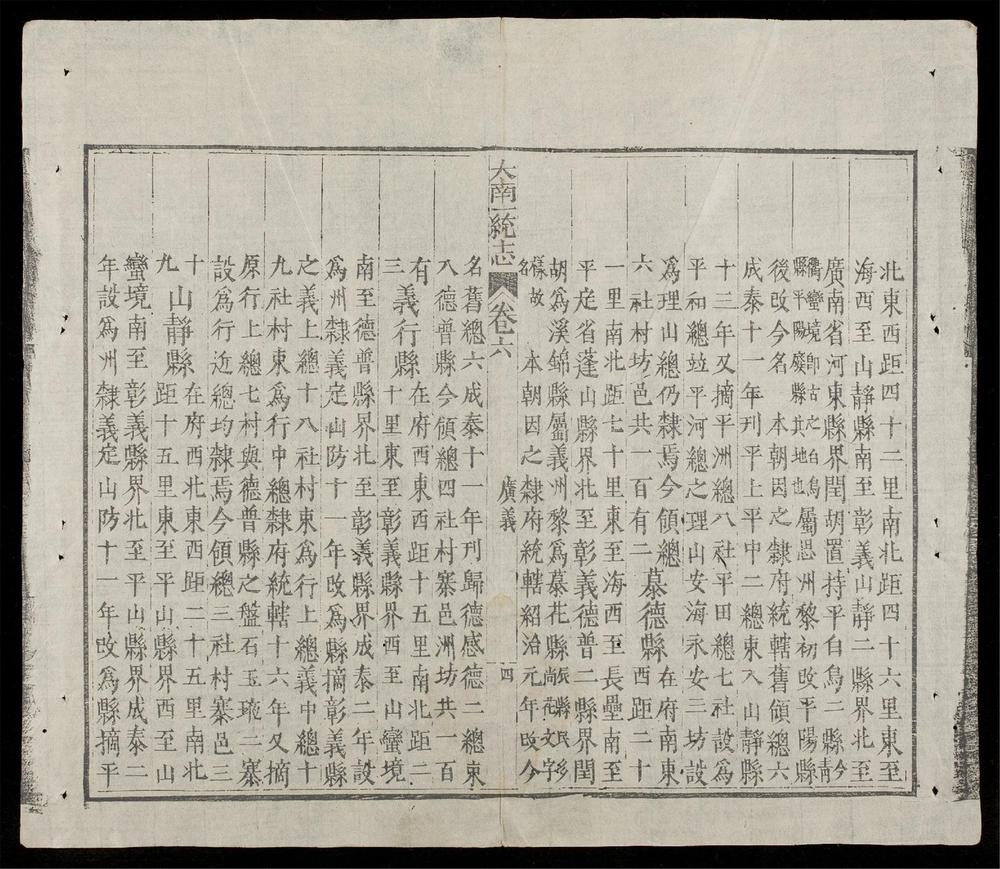 北東西距四十二里南北距四十六里東至
海西至山靜縣南至彰義山靜二縣界北至
廣南省河東縣界閏胡置持平白烏二縣今靑
衢蠻境卽古之白烏縣平陽廢縣其地也屬思州黎初改平陽縣
後改今名　本朝因之隸府統轄舊領總六
成泰十一年刊平上平中二總東入山靜縣
十三年又摘平洲總八社平田總七社設爲
平和總竝平河總之理山安海永安三坊設
爲理山總仍隸焉今領總
六社村坊邑共一百有二　慕德縣在府南東西距二十
一里南北距七十一里東至海西至長壘南至
平定省蓬山縣界北至彰義德普二縣界閏
胡爲溪錦縣屬義州黎爲慕花縣
樣故名　本朝因之隸府統轄紹治元年改今
大南一統志　卷六　廣義　四
名舊總六成泰十一年刊歸德感德二總東
入德普縣今領總四社村寨邑洲坊共一百
有二　義行縣在府西東西距十五里南北距二
三十里東至彰義縣界西至山蠻境
南至德普縣界北至彰義縣界成泰二年設
爲州隸義定山防十一年改爲縣摘彰義縣
之義上總十八社村東爲行上總義中總十
九社村東爲行中總隸府統轄十六年又摘
原行上總七村與德普縣之盤石玉琬二寨
設爲行近總均隸焉今領總三社村寨邑三
十九　山靜縣在府西北東西距二十五里南北
距十五里東至平山縣界西至山
蠻境南至彰義縣界北至平山縣界成泰二
年設爲州隸義定山防十一年改爲縣摘平